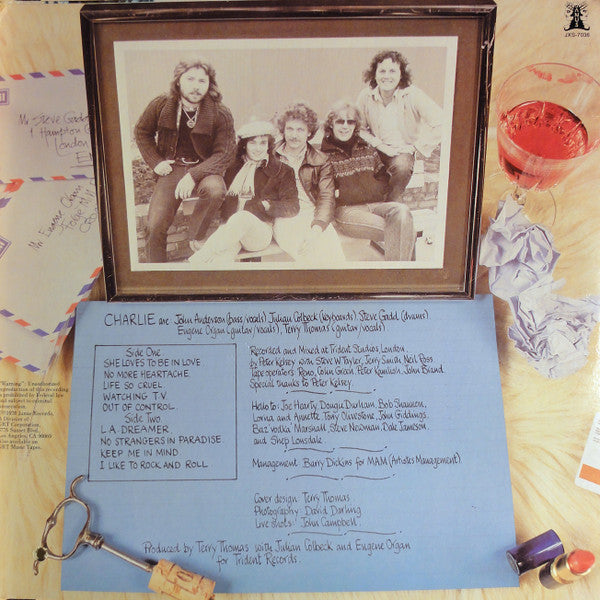 JANUS
JXS-7036
Mr Steve Gadd
1 Hampton
London
Mr. Eugene Organ
CHARLIE are John Anderson (bass/vocals) Julian Colbeck (keyboards) Steve Gadd (drums)
Eugene Organ (guitar/vocals), Terry Thomas (guitar/vocals)
Side One
SHE LOVES TO BE IN LOVE
NO MORE HEARTACHE
LIFE SO CRUEL
WATCHING T.V
OUT OF CONTROL
Side Two
L.A. DREAMER
NO STRANGERS IN PARADISE
KEEP ME IN MIND
I LIKE TO ROCK AND ROLL
Recorded and Mixed at Trident Studios, London
by Peter Kelsey with Steve W Tayler, Jerry Smith, Neil Ross
Tape operators Reno, Colin Green, Peter Kamlish, John Brand
Special thanks to Peter Kelsey.
Hello to: Joe Hearty, Dougu Durham, Bob Shannon,
Lorna and Annette, Tony Clivestone, John Giddings,
Baz vodka Marshall, Steve Newman, Dale Jameson
and Shep Lonsdale.
Management: Barry Dickins for MAM (Artistes Management).
Cover design: Terry Thomas
Photography: David Darling
Live shots: John Campbell.
Produced by Terry Thomas with Julian Colbeck and Eugene Organ
for Trident Records.
"Warning": Unauthorized
reproduction of this recording
is prohibited by Federal law
and subject to criminal
prosecution.
℗ 1978 Janus Records,
A Division of
GRT Corporation,
Sunset Blvd.
Los Angeles, CA 90069
Also available on
GRT Music Tapes.